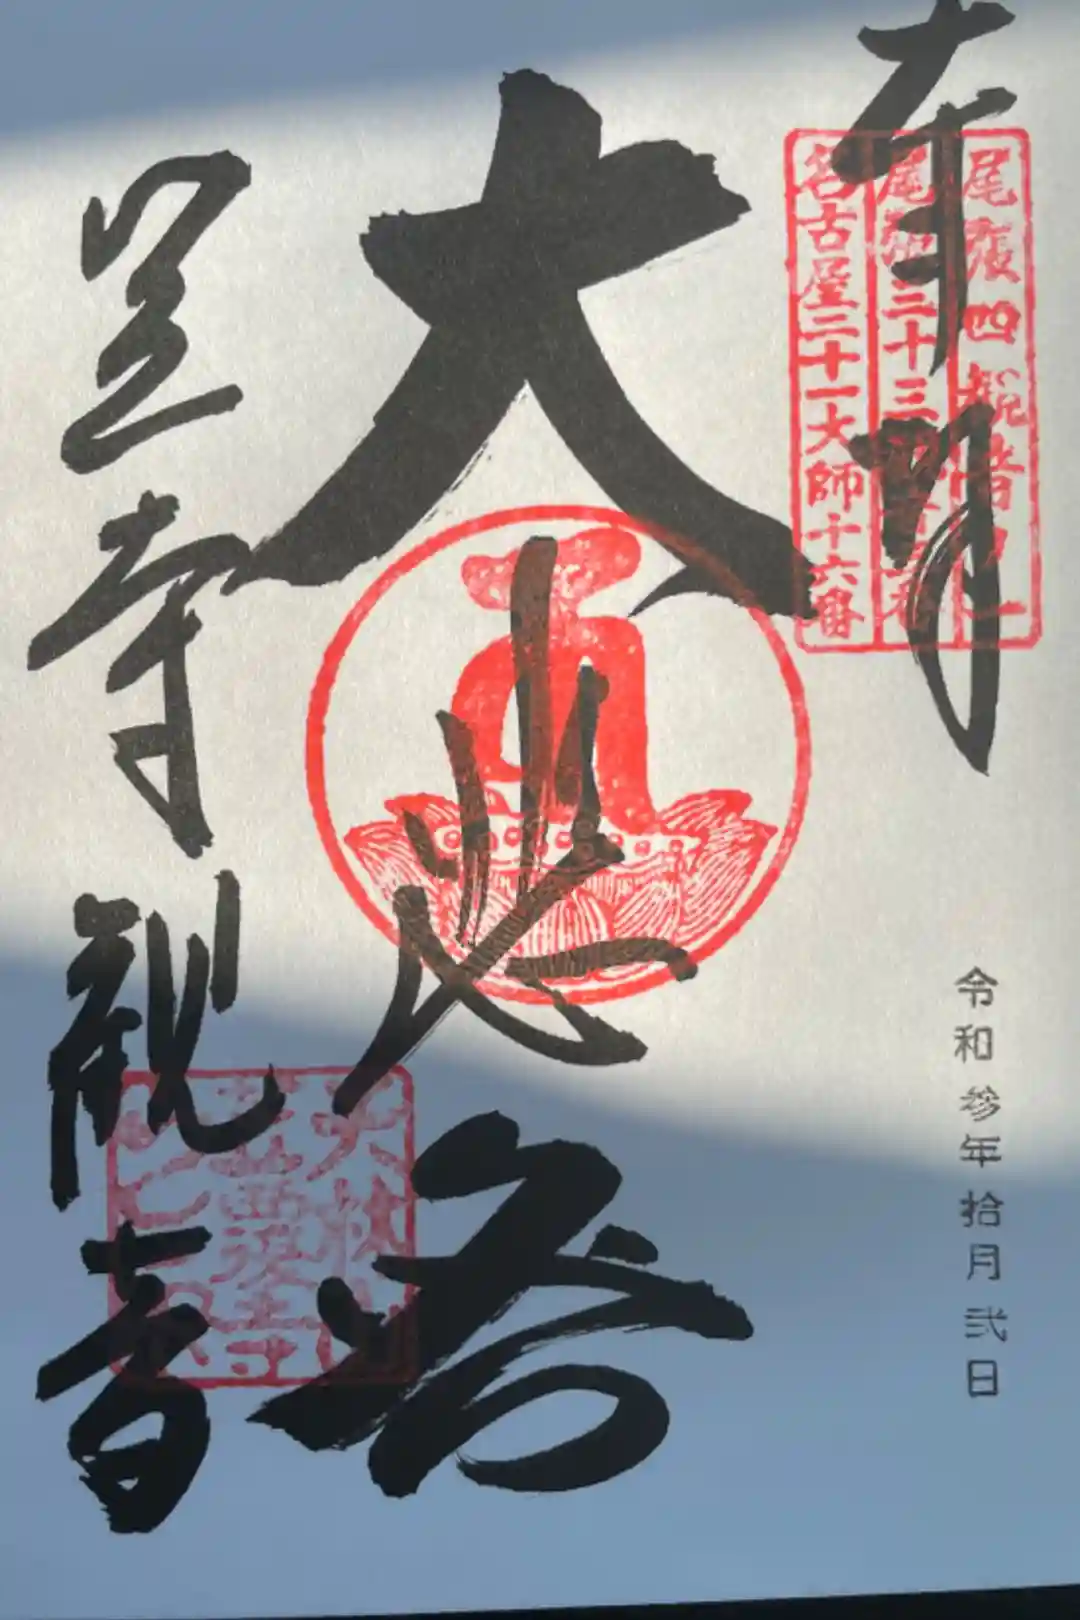 奉拝
尾張四観音之一
尾張三十三
名古屋二十一大師十六番
令和参年拾月弐日
大悲閣
笠寺観音
天林山
笠覆寺